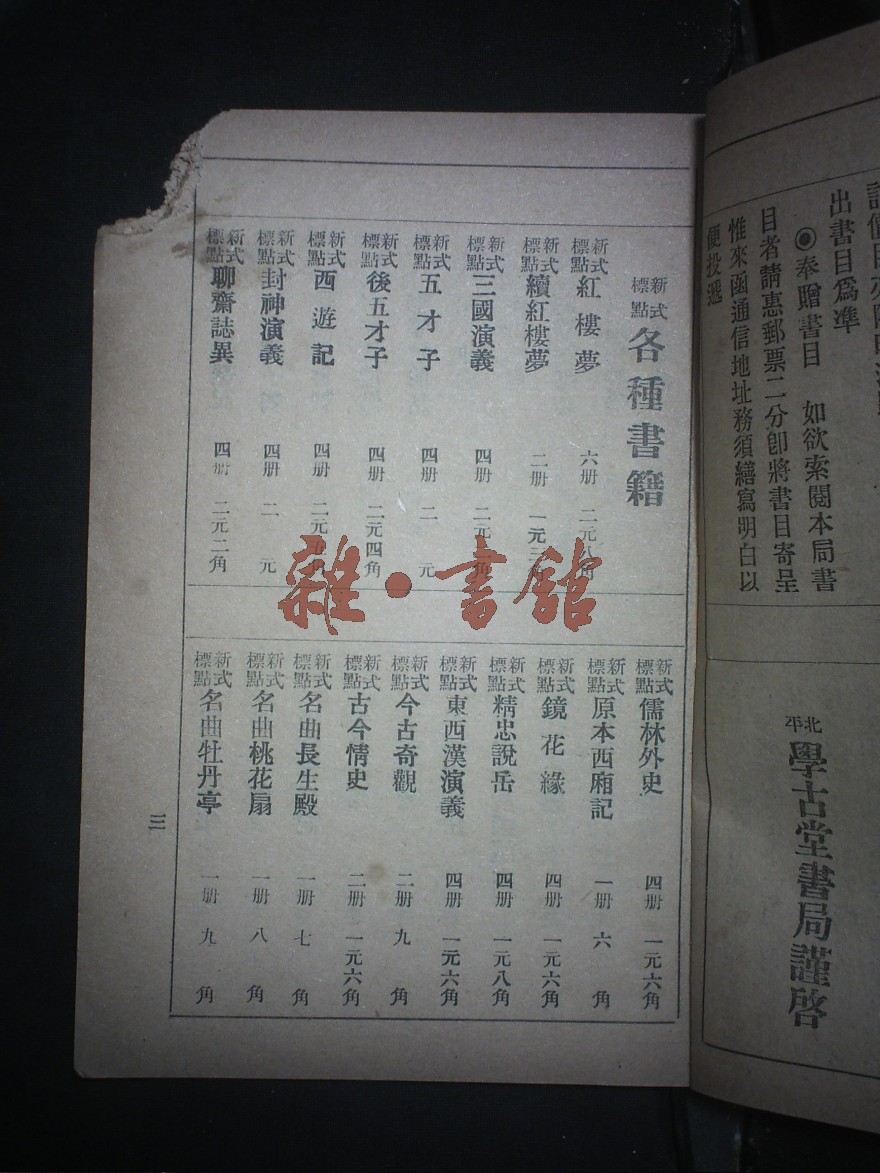 出書目爲準
◉奉贈書目 如欲索閱本局書
目者請惠郵票二分卽將書目寄呈
惟來函通信地址務須繕寫明白以
便投遞
北平 學古堂書局謹啓
新式標點 各種書籍
新式標點 紅樓夢 六册 二元八角
新式標點 續紅樓夢 二册 一元三角
新式標點 三國演義 四册 二元 角
新式標點 五才子 四册 二元
新式標點 後五才子 四册 二元四角
新式標點 西遊記 四册 二元
新式標點 封神演義 四册 二元
新式標點 聊齋誌異 四册 二元二角
新式標點 儒林外史 四册 一元六角
新式標點 原本西廂記 一册 六角
新式標點 鏡花緣 四册 一元六角
新式標點 精忠說岳 四册 一元八角
新式標點 東西漢演義 四册 一元六角
新式標點 今古奇觀 二册 九角
新式標點 古今情史 二册 一元六角
新式標點 名曲長生殿 一册 七角
新式標點 名曲桃花扇 一册 八角
新式標點 名曲牡丹亭 一册 九角
三
雜·書館